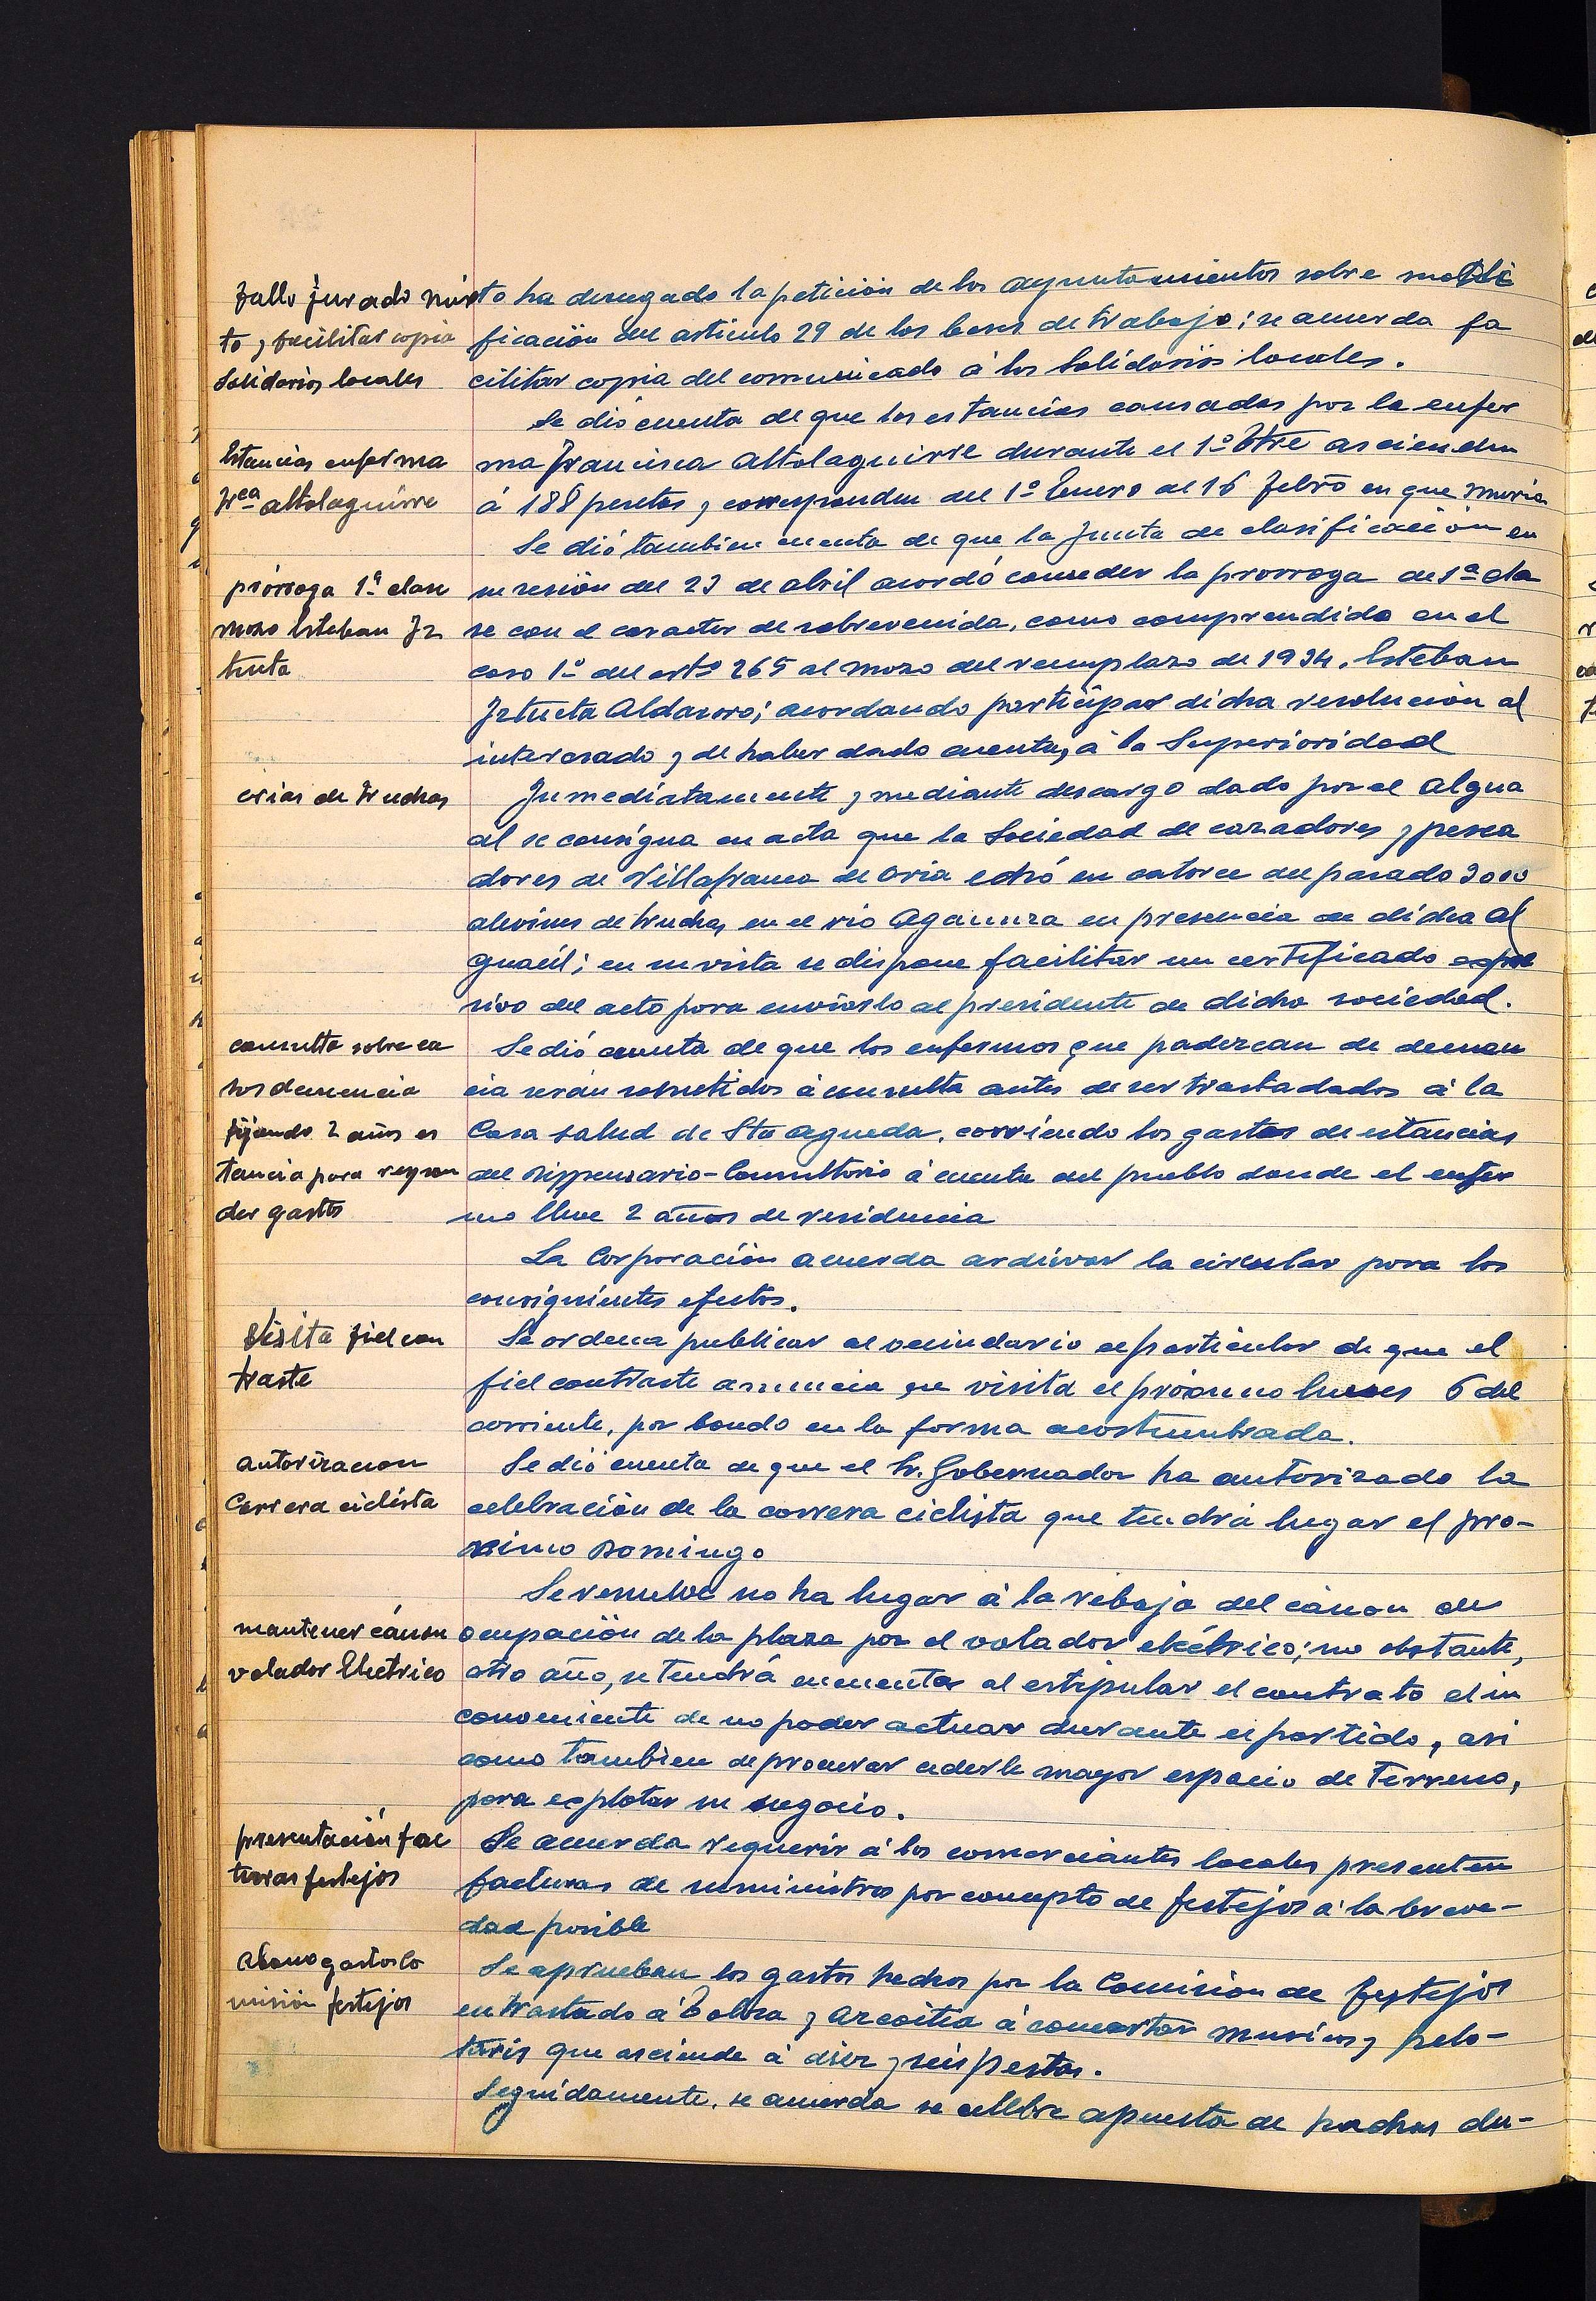 Fallo Jurado mix
to y facilitar copia
Solidarios locales
to ha denegado la petición de los ayuntamientos sobre modi
ficación del articulo 29 de las bases de trabajo; se acuerda fa
cilitar copia del comunicado á los Solidarios locales.
Se dió cuenta de que las estancias causadas por la enfer
Estancias enferma
Frca Altolaguirre
ma Francisca Altolaguirre durante el 1º Etre ascienden
á 188 pesetas y corresponden del 1º Enero al 16 Febro en que murió
Se dió tambien cuenta de que la Junta de clasificación en
prórroga 1ª clase
mozo Esteban Iz
tueta
su sesión del 23 de abril acordó conceder la prorroga de 1ª cla
se con el caracter de sobrevenida, como comprendido en el
caso 1º del artº 265 al mozo del reemplazo de 1934, Esteban
Iztueta Aldasoro; acordando participar dicha resolución al
interesado y de haber dado cuenta, á la Superioridad
crias de truchas
Inmediatamente y mediante descargo dado por el Algua
cil se consigna en acta que la Sociedad de cazadores y pesca
dores de Villafranca de Oria echó en catorce del pasado 3000
alevines de truchas en el rio Agaunza en presencia de dicho Al
guacil; en su vista se dispone facilitar un certificado expre
sivo del acto para enviarlo al presidente de dicha sociedad.
consulta sobre ca
sos demencia
fijando 2 años es
tancia para respon
der gastos
Se dió cuenta de que los enfermos que padezcan de demen
cia serán sometidos á consulta antes de ser trasladados á la
Casa salud de Sta Agueda, corriendo los gastos de estancias
del Dispensario-Consultorio á cuenta del pueblo donde el enfer
mo lleve 2 años de residencia
La Corporación acuerda archivar la circular para los
consiguientes efectos.
Visita fiel con
traste
Se ordena publicar al vecindario el particular de que el
fiel contraste anuncia su visita el próximo lunes 6 del
corriente, por bando en la forma acostumbrada.
autorizacion
Carrera ciclista
Se dió cuenta de que el Sr. Gobernador ha autorizado la
celebración de la carrera ciclista que tendrá lugar el pro-
ximo Domingo
Se resuelve no ha lugar á la rebaja del cánon de
mantener cánon
volador Electrico
ocupación de la plaza por el volador eléctrico; no obstante,
otro año, se tendrá en cuenta al estipular el contrato el in
conveniente de no poder actuar durante el partido, asi
como tambien de procurar cederle mayor espacio de Terreno,
para explotar su negocio.
presentación fac
turas festejos
Se acuerda requerir á los comerciantes locales presenten
facturas de suministros por concepto de festejos á la breve-
dad posible
Abono gastos Co
misión festejos
Se aprueban los gastos hechos por la Comision de festejos
en traslado á Tolosa y Azcoitia á concertar musicos y pelo-
taris que asciende á diez y seis pestas.
Seguidamente, se acuerda se celebre apuesta de hachas du-